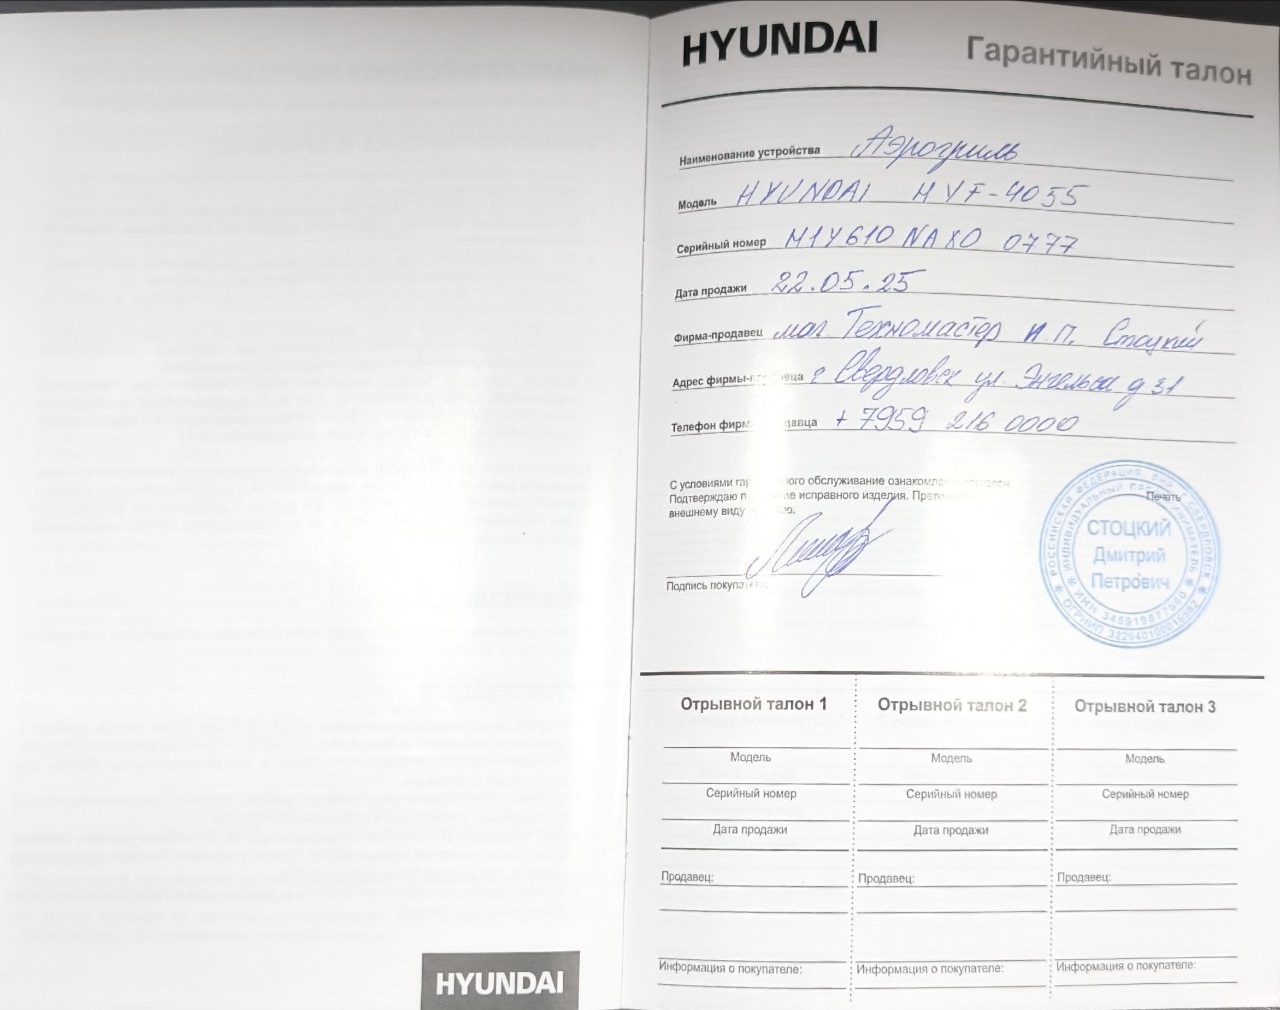 HYUNDAI Гарантийный талон
Наименование устройства Аэрогриль
Модель HYUNDAI HYF-4055
Серийный номер M1Y610NAX0 0777
Дата продажи 22.05.25
Фирма-продавец маг. Техномастер И.П. Стоцкий
Адрес фирмы- г Свердловск ул. Энгельса д 31
Телефон +7959 216 0000
С условиями обслуживание
Подтверждаю исправного изделия.
внешнему виду
Подпись
Печать
РОССИЙСКАЯ ФЕДЕРАЦИЯ ЛНР СВЕРДЛОВСК
ИНДИВИДУАЛЬНЫЙ ПРЕДПРИНИМАТЕЛЬ
СТОЦКИЙ
Дмитрий
Петрович
ИНН
ОГРНИП
Отрывной талон 1 Отрывной талон 2 Отрывной талон 3
Модель Модель Модель
Серийный номер Серийный номер Серийный номер
Дата продажи Дата продажи Дата продажи
Продавец: Продавец: Продавец:
Информация о покупателе: Информация о покупателе: Информация о покупателе:
HYUNDAI